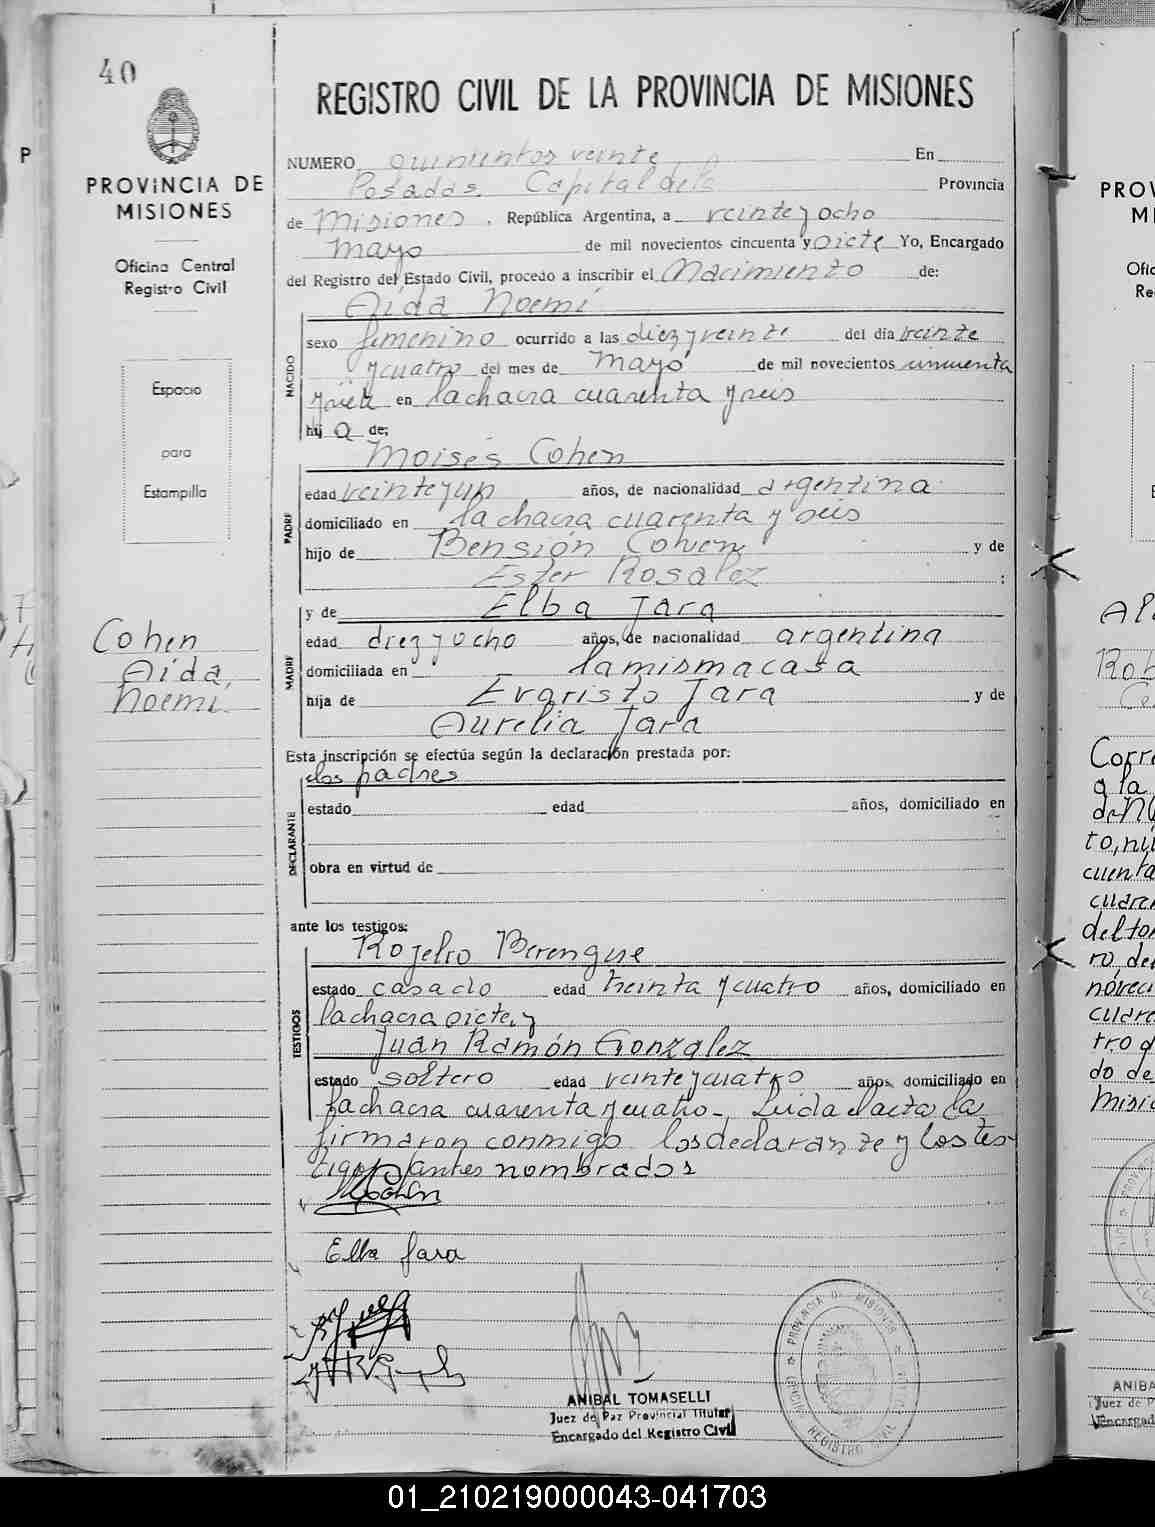 40
PROVINCIA DE
MISIONES
Oficina Central
Registro Civil
Espacio
para
Estampilla
Cohen
Aída
Noemí
REGISTRO CIVIL DE LA PROVINCIA DE MISIONES
NUMERO quinientos veinte En
Posadas Capital de la Provincia
de Misiones. República Argentina, a veinte y ocho
mayo de mil novecientos cincuenta y siete Yo, Encargado
del Registro del Estado Civil, procedo a inscribir el Nacimiento de:
Aída Noemí
NACIDO
sexo femenino ocurrido a las diez y veinte del día veinte
y cuatro del mes de Mayo de mil novecientos cincuenta
y siete en la chacra cuarenta y seis
hij a de;
Moisés Cohen
PADRE
edad veinte y un años, de nacionalidad argentina
domiciliado en la chacra cuarenta y seis
hijo de Bensión Cohen y de
Ester Rosalez :
y de Elba Jara
MADRE
edad diez y ocho años, de nacionalidad argentina
domiciliada en la misma casa
hija de Evaristo Jara y de
Aurelia Jara
Esta inscripción se efectúa según la declaración prestada por:
los padres
DECLARANTE
estado edad años, domiciliado en
obra en virtud de
ante los testigos:
Rogelio Berengue
TESTIGOS
estado casado edad treinta y cuatro años, domiciliado en
la chacra siete, y
Juan Ramón González
estado soltero edad veinte y cuatro años, domiciliado en
la chacra cuarenta y cuatro-, Leída el acta la
firmaron conmigo los declarante y los tes
tigos antes nombrados
MCohen
Elba Jara
ANIBAL TOMASELLI
Juez de Paz Provincial Titular
Encargado del Registro Civil
PROVINCIA DE MISIONES
REGISTRO CIVIL
P
PROV
MI
Ofic
Re
Corre
a la
cuenta
cuaren
del to
ro, de
noveci
cuare
tro
do de
Misio
ANIBA
Juez de P
Encargad
01_210219000043-041703